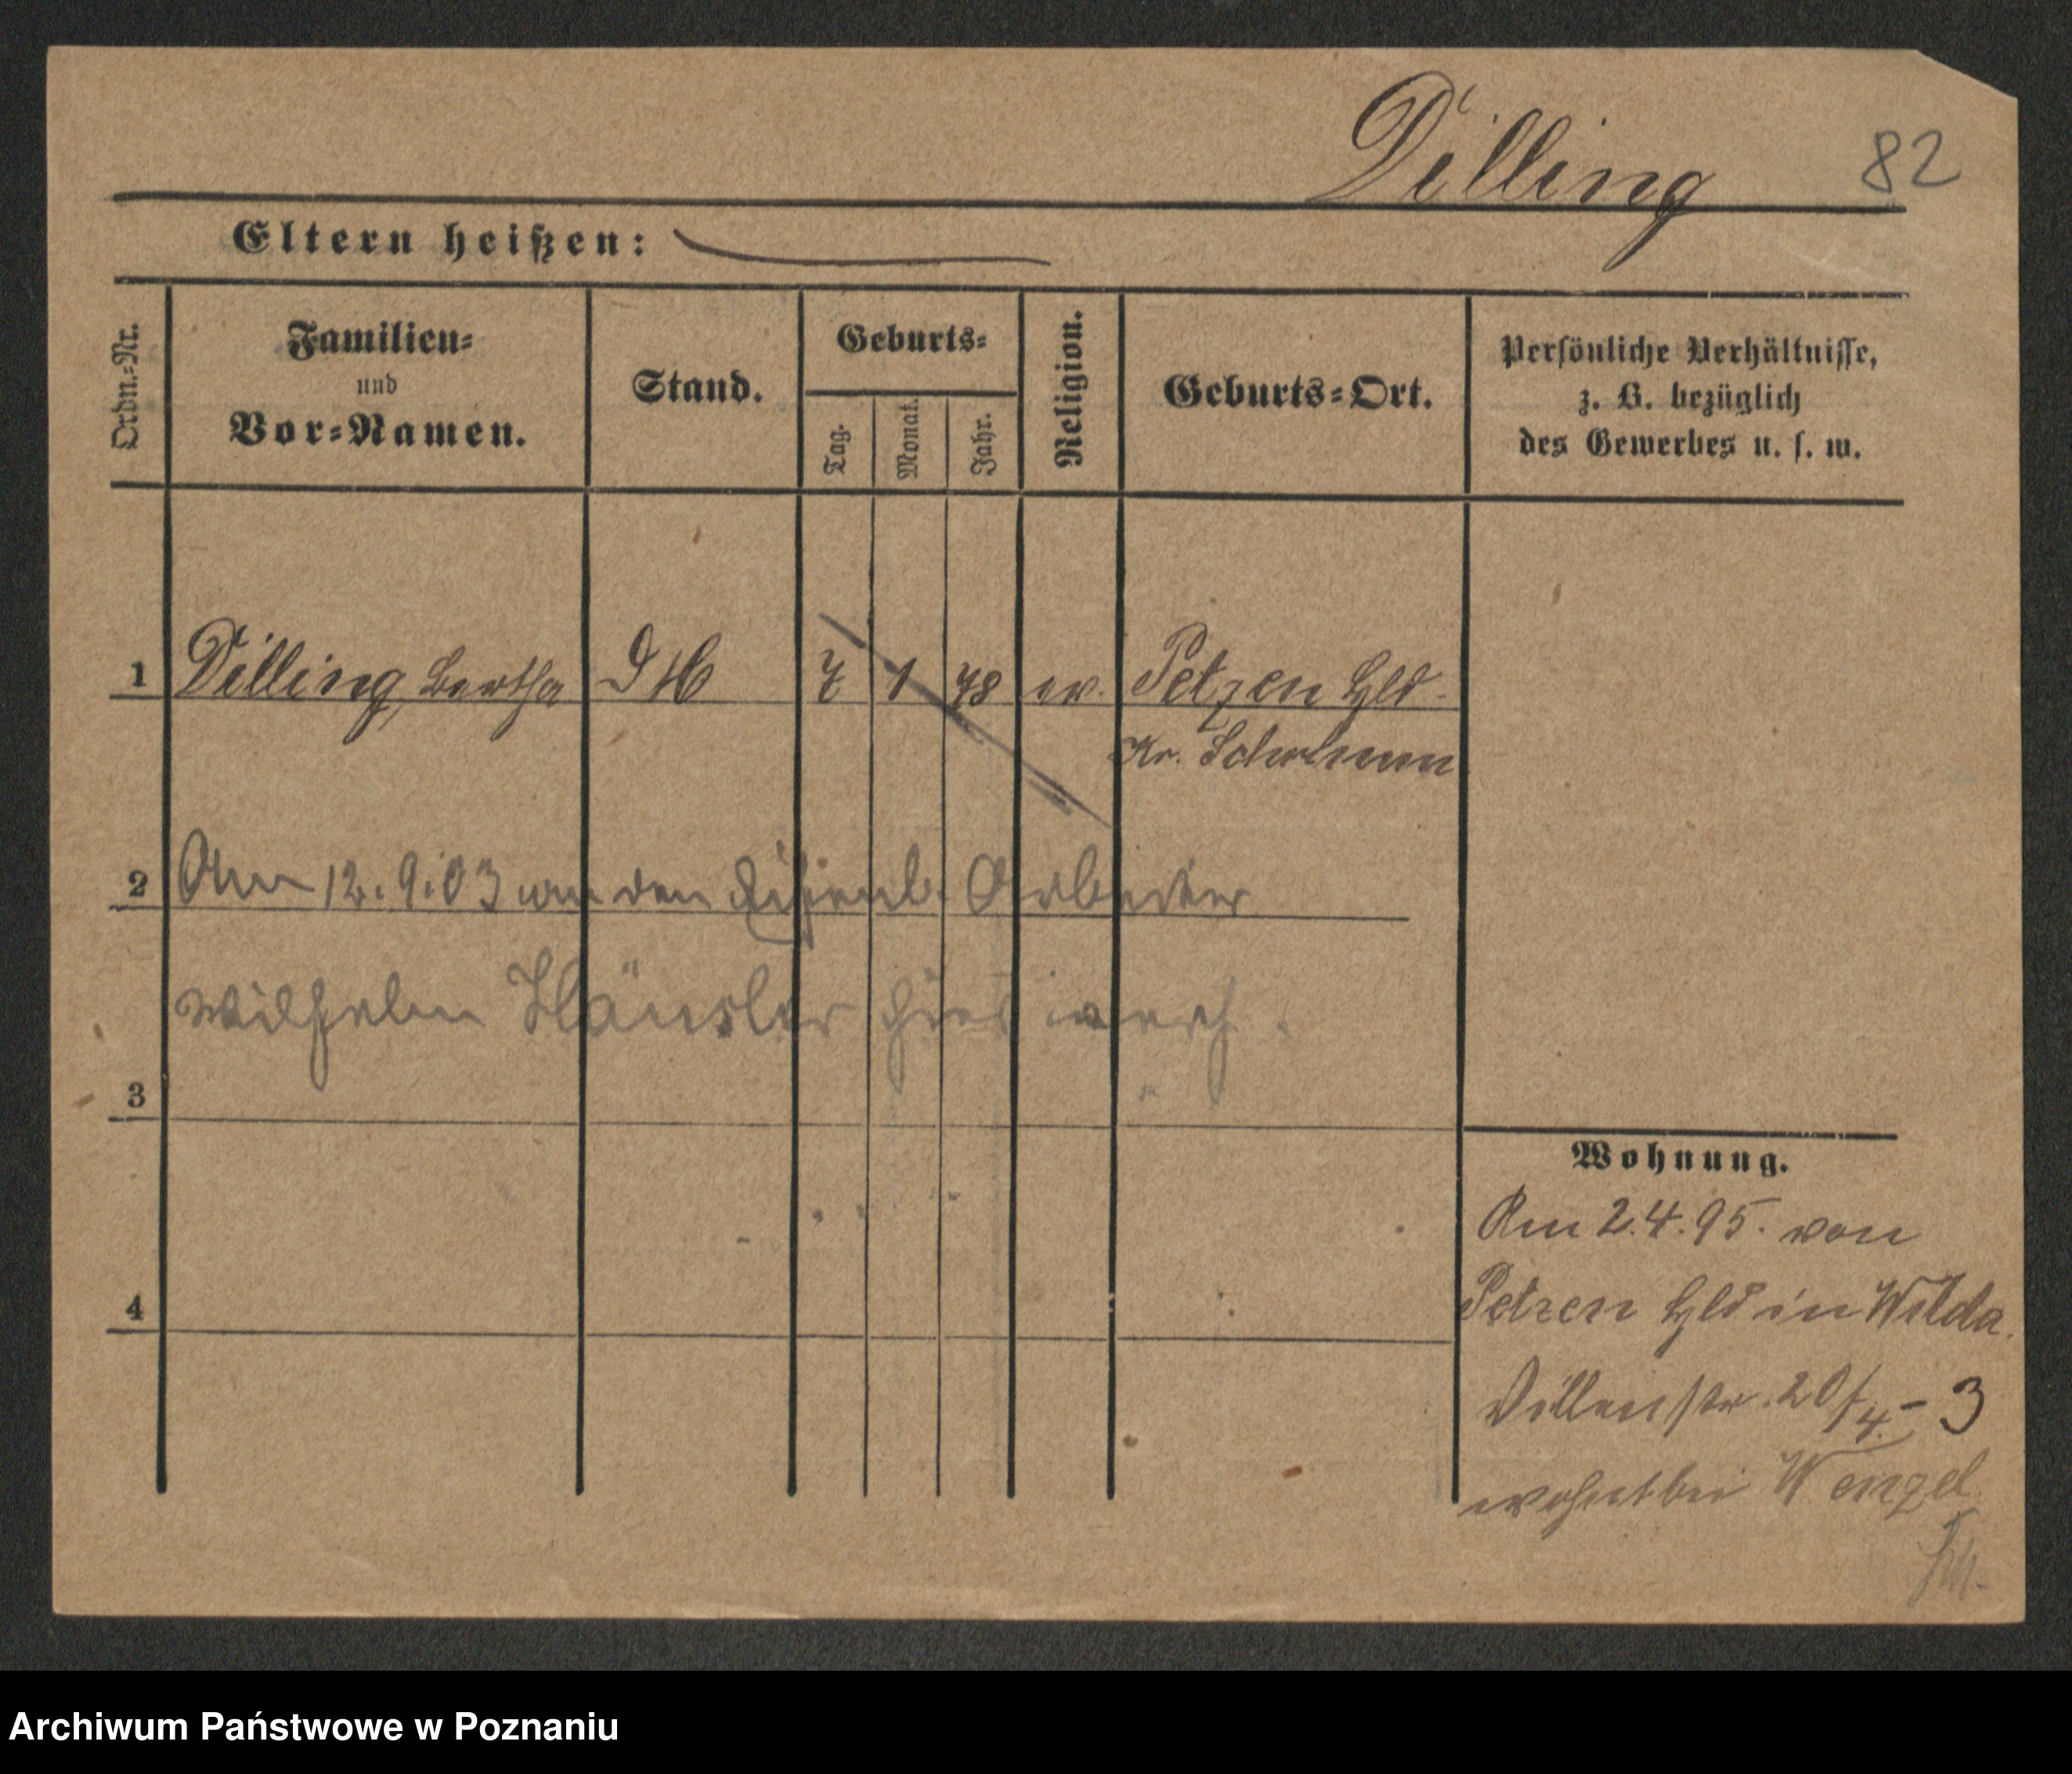 Dilling 82
Eltern heißen:
Ordn.-Nr.
Familien-
und
Vor-Namen.
Stand.
Geburts-
Tag.
Monat.
Jahr.
Religion.
Geburts-Ort.
Persönliche Verhältnisse,
z. B. bezüglich
des Gewerbes u. s. w.
1 Dilling, Bertha D M 7 1 78 ev. Petzen Hld.
Kr.
2 Am 12.9.03 an den Eisenb. Arbeiter
Wilhelm Hänsler hier verh.
3
Wohnung.
Am 2.4.95. von
Petzen Hld in Wilda.
4
Villenstr. 20/4 - 3
wohnt bei Wenzel
Archiwum Państwowe w Poznaniu